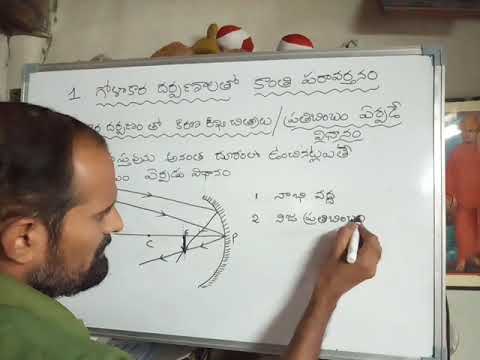 1 గోళాకార దర్పణాలతో కాంతి పరావర్తనం
దర్పణం తో కిరణ చిత్రాలు/ప్రతిబింబం ఏర్పడే
విధానం
అనంత దూరంలో ఉంచినట్లయితే
ఏర్పడు విధానం
1 నాభి వద్ద
2 నిజ ప్రతిబింబం
C F P